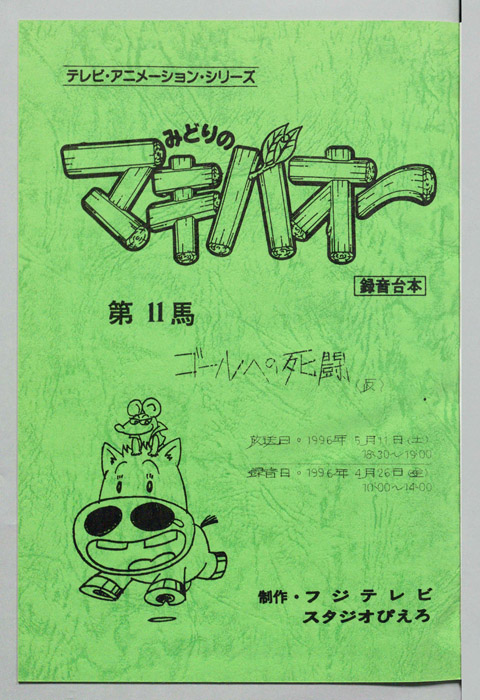 テレビ・アニメーション・シリーズ
みどりの
マキバオー
録音台本
第11馬
ゴールへの死闘(仮)
放送日。1996年5月11日(土)
18:30〜19:00
録音日。1996年4月26日(金)
10:00〜14:00
制作・フジテレビ
スタジオぴえろ